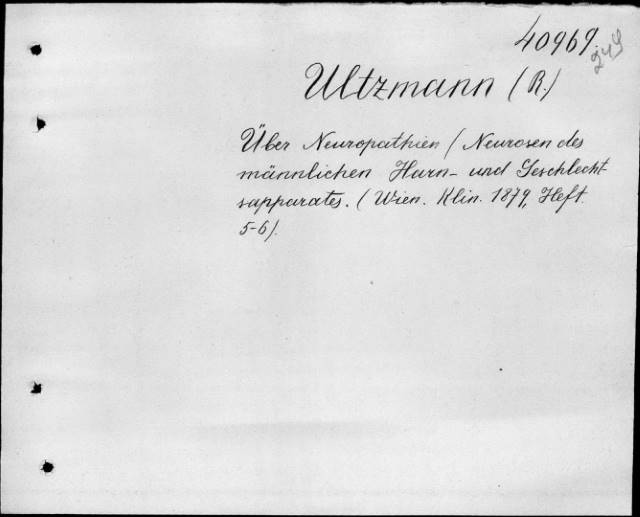 40969.
249
Ultzmann (R.)
Über Neuropathien (Neurosen des
männlichen Harn- und Geschlecht-
sapparates. (Wien. Klin. 1879, Heft.
5-6).